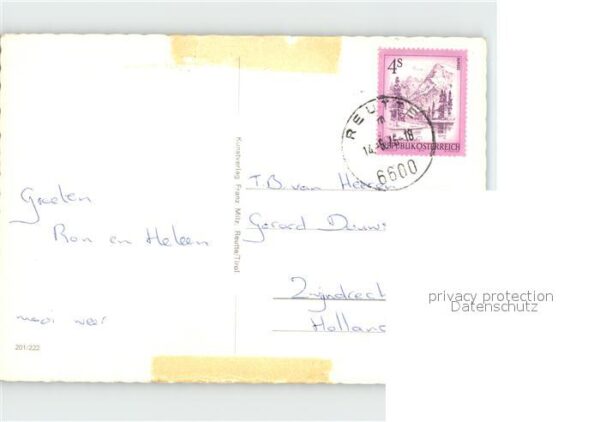 4S
REPUBLIK ÖSTERREICH
REUTTE
6600
Kunstverlag Franz Milz, Reutte/Tirol
Groeten
Ron en Heleen
mooi weer
201/222
T.B. van
Gerard
Zwijndrecht
Holland
privacy protection
Datenschutz